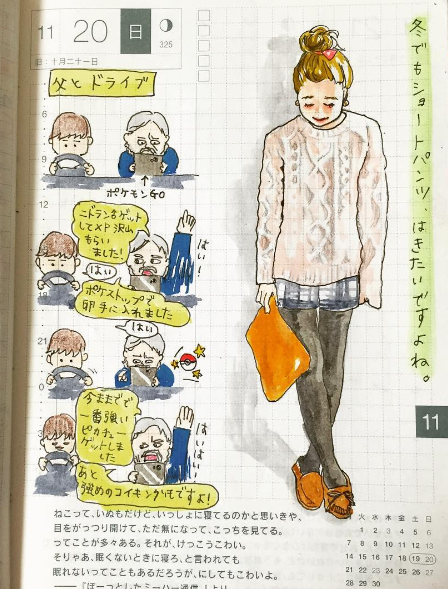 11
20
日
325
旧：十月二十一日
父とドライブ
6
9
ポケモンGO
12
ニドランをゲット
してXP沢山
もらい
ました！
はい！
はい
ポケストップで
卵手に入れました
21
はい
0
3
今までで
一番強い
ピカチュー
ゲットしま
した
はいはい！
あと
強めのコイキングもですよ！
冬でもショートパンツ、はきたいですよね。
11
ねこって、いぬもだけど、いっしょに寝てるのかと思いきや、
目をがっつり開けて、ただ無になって、こっちを見てる。
ってことが多々ある。それが、けっこうこわい。
そりゃあ、眠くないときに寝ろ、と言われても
眠れないってこともあるだろうが、にしてもこわいよ。
――『ぼーっとしたミーハー通信』より
月 火 水 木 金 土 日
1 2 3 4 5 6
7 8 9 10 11 12 13
14 15 16 17 18 19 20
21 22 23 24 25 26 27
28 29 30